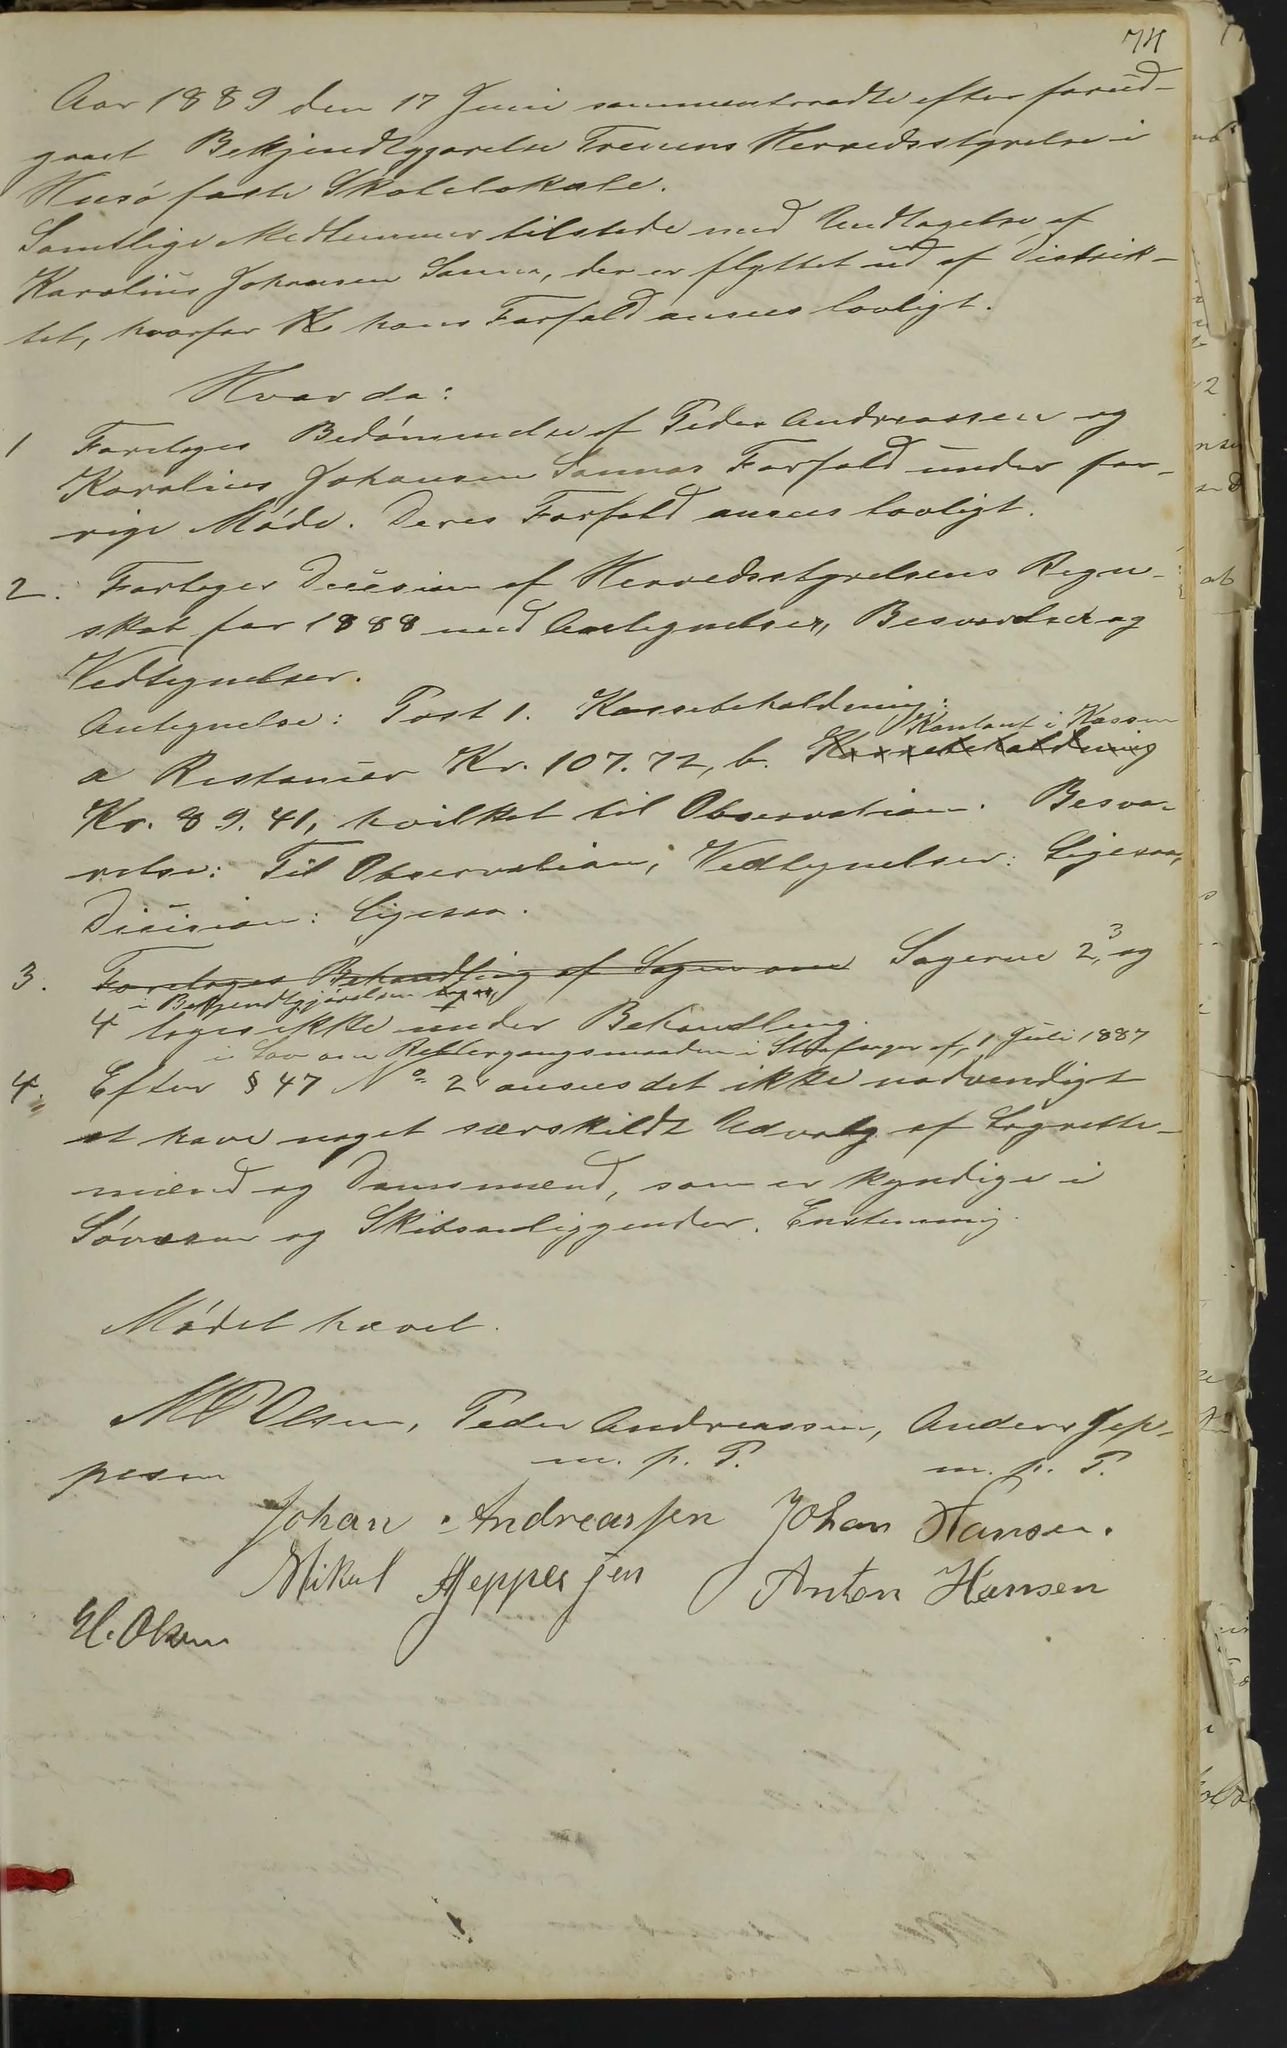 74
Aar 1889 den 17 Juni sammentraadte efter forud-
gaaet Bekjendtgjørelse Trænens Herredsstyrelse i
Husø faste Skolelokale.
Samtlige Medlemmer tilstede med Undtagelse af
Karolius Johansen Sanna, der er flyttet ud af Distrik-
tet, hvorfor H hans Forfald ansees lovligt.
Hvor da:
1 Foretoges Bedømmelse af Peder Andreassen og
Karolius Johansen Sannas Forfald under for-
rige Møde. Deres Forfald ansees lovligt.
2. Fortoges Decision af Herredsstyrelsens Regn-
skab for 1888 med Antegnelser, Besvarelser og
Vedtegnelser.
Antegnelse: Post 1. Kassebeholdning:
Kontant i Kassen
a Restancer Kr. 107.72, b. Kassebeholdning
Kr. 89.41, hvilket til Observation. Besva-
relse: Til Observation, Vedtegnelser: Ligesaa,
Dicision: Ligesaa.
3. Foretoges Behandling af Sagen om Sagerne 2, 3 og
i Bekjendtgjørelsen
4 toges ikke under Behandling.
i Lov om Rettergangsmaaden i Straffesager af 1 Juli 1887
4. Efter § 47 No 2 ansees det ikke nødvendigt
at have noget særskildt Udvalg af Lagrette-
mænd og Domsmænd, som er kyndige i
Søvæsen og Skibsanliggender. Enstemmig.
Mødet hævet.
M P Olsen, Peder Andreassen, Anders Jep-
m. p. P. m. p. P.
pesen
Johan Andreassen Johan Hansen.
Mikal Jeppesen Anton Hansen
H. Olsen